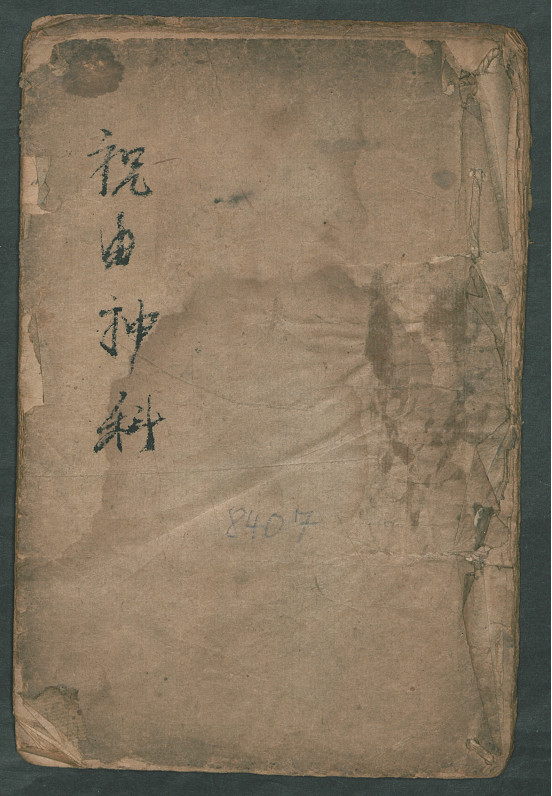 祝由神科
8407